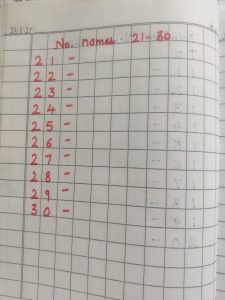 No. names 21-30
21 -
22 -
23 -
24 -
25 -
26 -
27 -
28 -
29 -
30 -